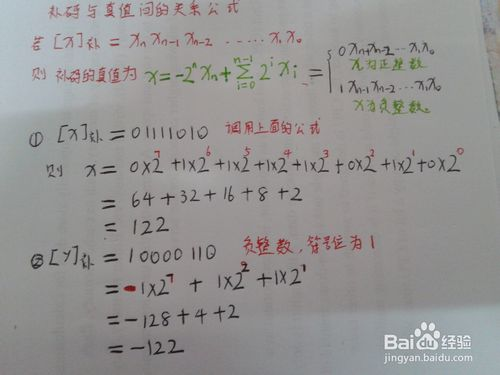 补码与真值间的关系公式
若[x]补 = xₙ xₙ₋₁ xₙ₋₂ ····· x₁ x₀
则 补码的真值为 x = -2ⁿxₙ + ∑ᵢ₌₀ⁿ⁻¹ 2ⁱxᵢ = { 0xₙ₊xₙ₋₂···x₁x₀
x为正整数
1xₙ₋₁xₙ₋₂···x₁x₀
x为负整数
① [x]补 = 01111010 调用上面的公式
则 x = 0×2⁷+1×2⁶+1×2⁵+1×2⁴+1×2³+0×2²+1×2¹+0×2⁰
= 64+32+16+8+2
= 122
② [y]补 = 10000110 负整数,符号位为1
= -1×2⁷ + 1×2² + 1×2¹
= -128+4+2
= -122
Baidu经验
jingyan.baidu.com